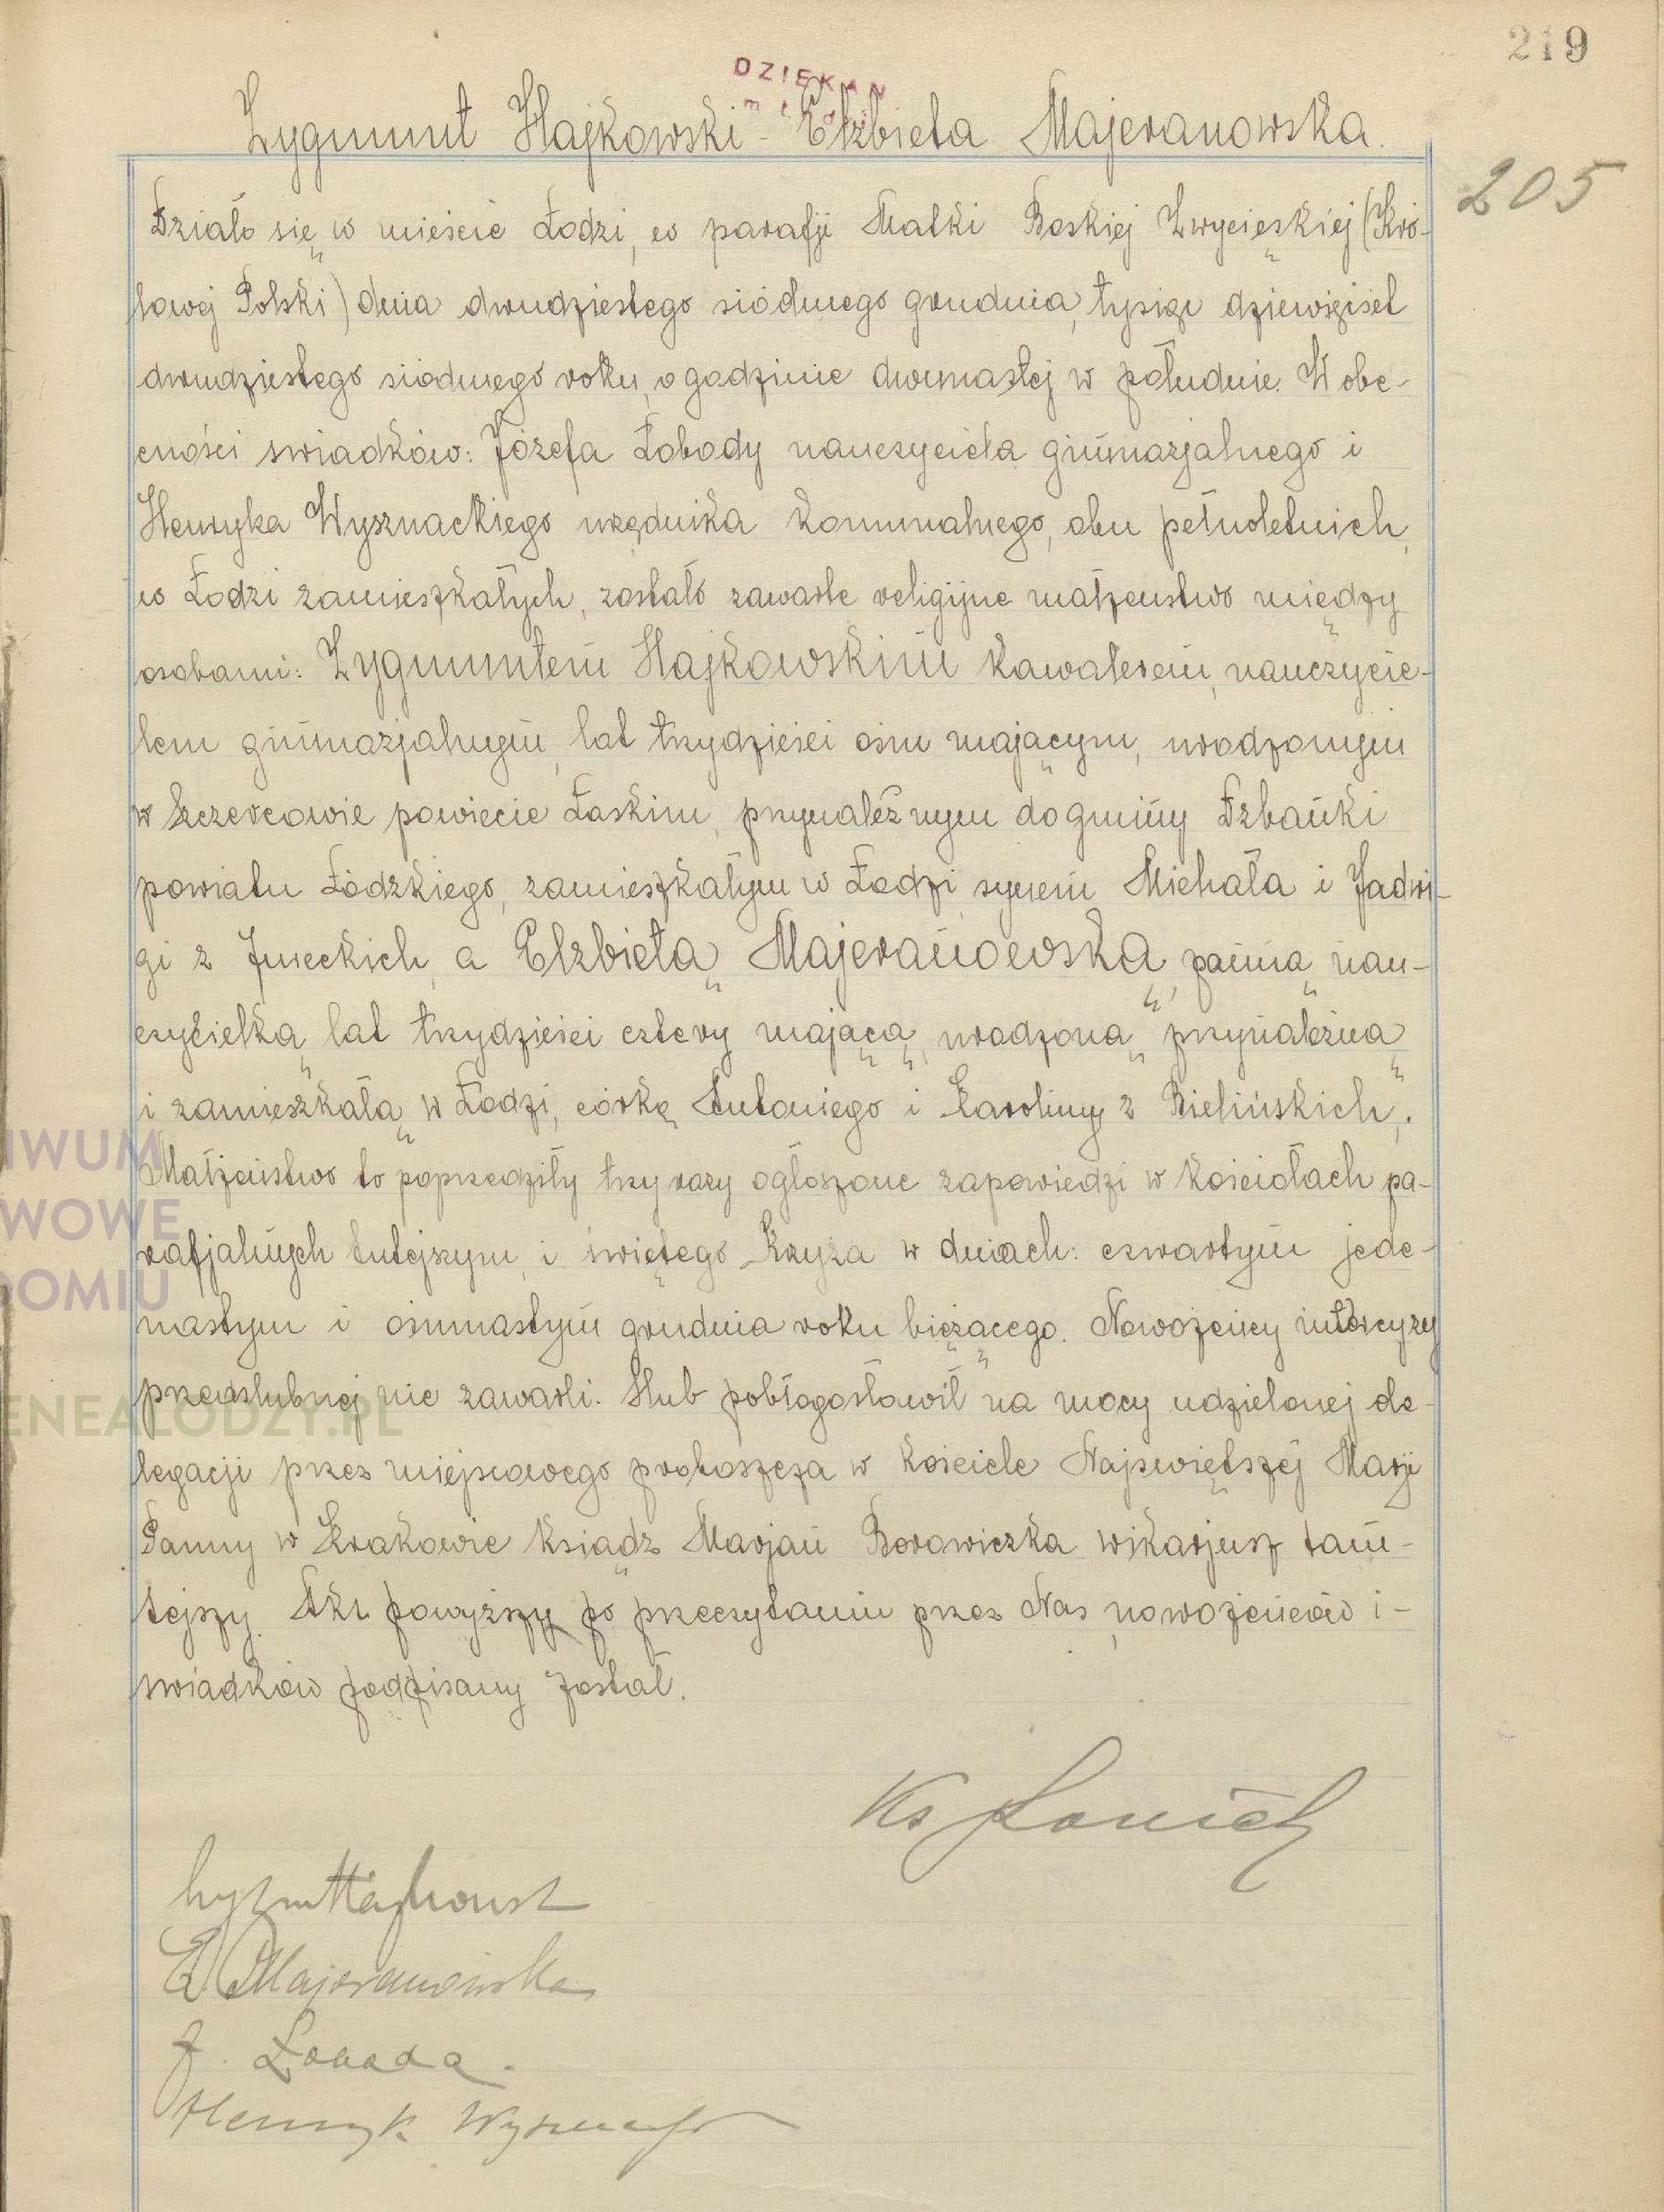 219
DZIEKAN
Zygmunt Hajkowski - Elżbieta Majeranowska.
205
Działo się w mieście Łodzi, w parafji Matki Boskiej Zwycięskiej (Kró-
lowej Polski) dnia dwudziestego siódmego grudnia, tysiąc dziewięćset
dwudziestego siódmego roku, o godzinie dwunastej w południe. W obe-
cności świadków: Józefa Łobody nauczyciela gimnazjalnego i
Henryka Wysznackiego urzędnika komunalnego, obu pełnoletnich,
w Łodzi zamieszkałych, zostało zawarte religijne małżeństwo między
osobami: Zygmuntem Hajkowskim kawalerem, nauczycie-
lem gimnazjalnym, lat trzydzieści osiem mającym, urodzonym
w Szczercowie powiecie Łaskim, przynależnym do gminy Dzbanki
powiatu Łódzkiego, zamieszkałym w Łodzi, synem Michała i Jadwi-
gi z Jureckich, a Elżbietą Majeranowską, panną nau-
czycielką, lat trzydzieści cztery mającą, urodzoną, przynależną
i zamieszkałą w Łodzi, córką Antoniego i Karoliny z Bielińskich.
Małżeństwo to poprzedziły trzy razy ogłoszone zapowiedzi w kościołach pa-
rafjalnych tutejszym, i świętego Krzyża w dniach: czwartym jede-
nastym i ośmnastym grudnia roku bieżącego. Nowożeńcy intercyzy
przedślubnej nie zawarli. Ślub pobłogosławił na mocy udzielonej de-
legacji przez miejscowego proboszcza w kościele Najświętszej Marji
Panny w Krakowie ksiądz Marjan Borowiczka wikarjusz tam-
tejszy. Akt powyższy po przeczytaniu przez Nas, nowożeńców i-
świadków podpisany został.
Ks
E. Majeranowska
J. Łoboda.
Henryk
IWUM
WOWE
DOMIU
ENEALODZY.PL